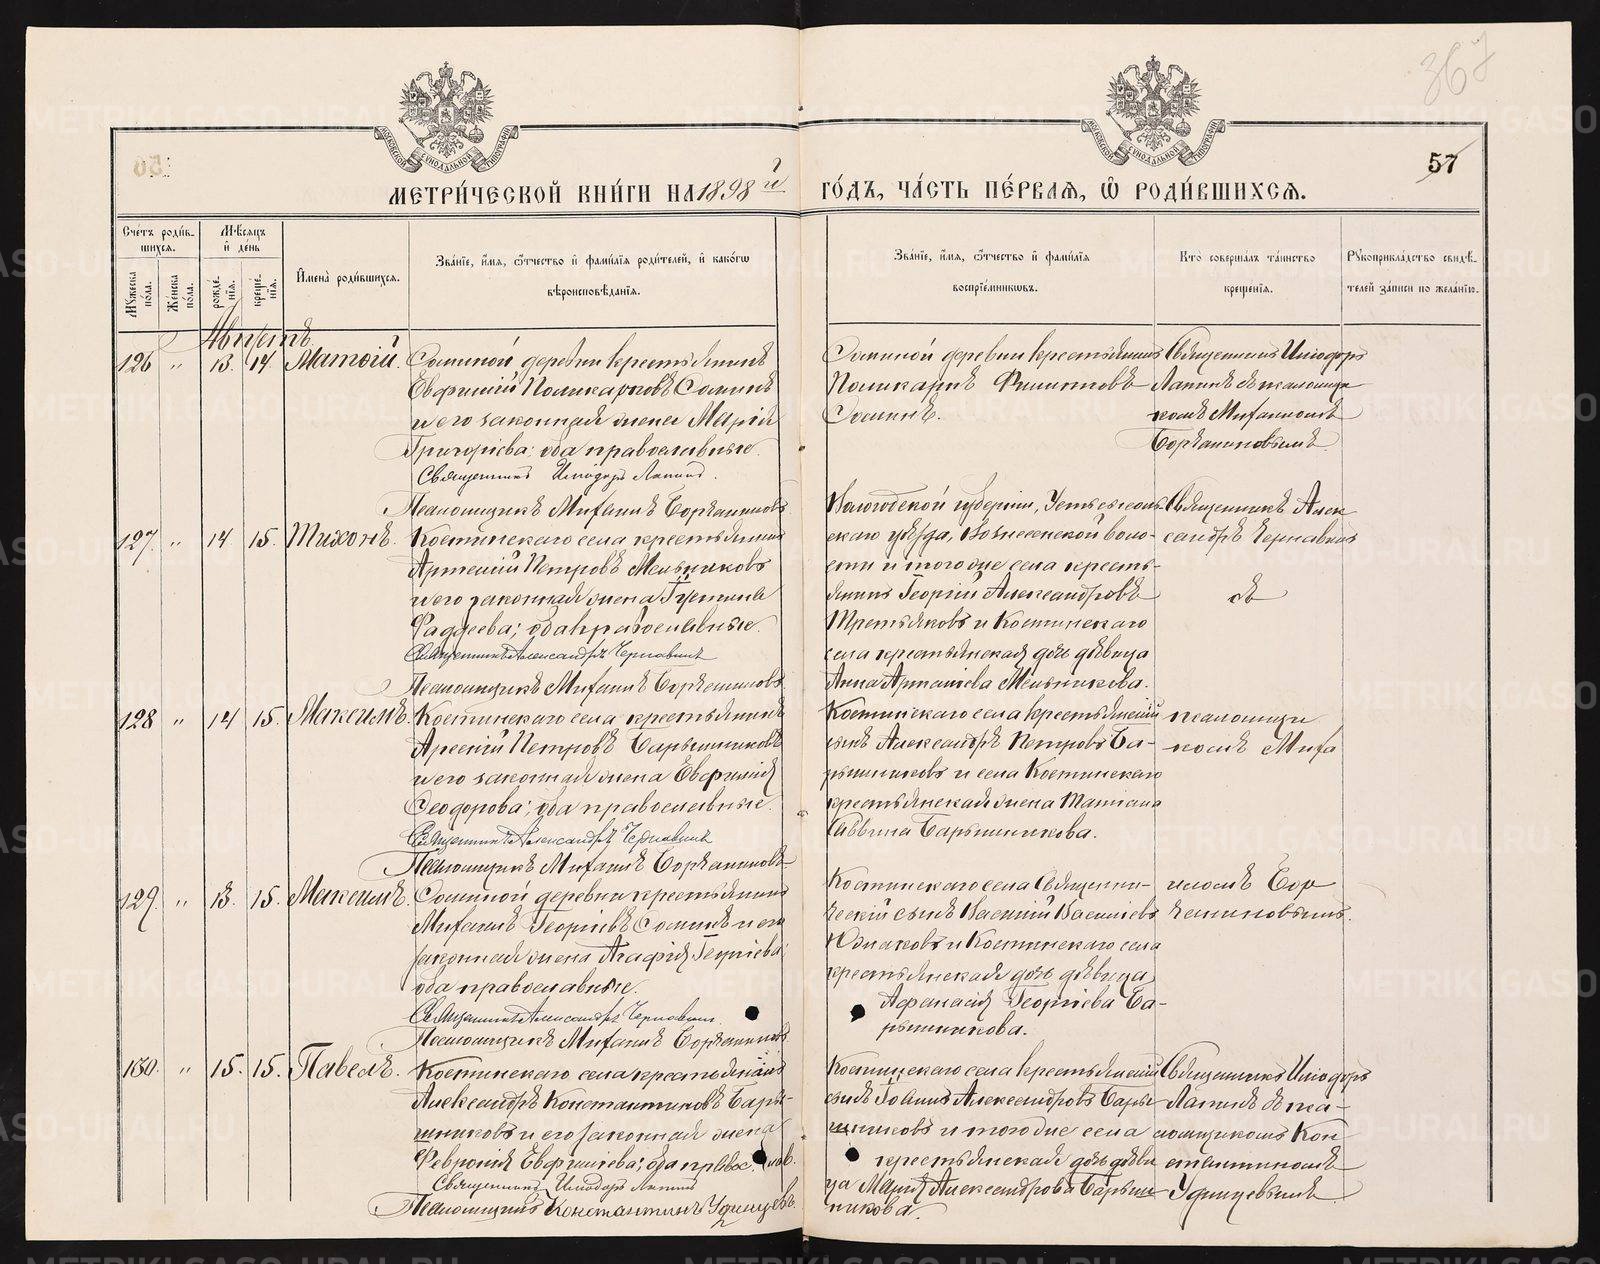 367
57
МЕТРИ́ЧЕСКОЙ КНИ́ГИ НА 1898 й ГО́ДЪ, ЧА́СТЬ ПЕ́РВАѦ, Ѽ РОДИ́ВШИХСѦ.
Сче́тъ роди́в-
шихся.
Мѣ́сяцъ
и де́нь
Мꙋжеска по́ла.
Же́нска по́ла.
рожде́-нїя.
креще́-нїя.
Имена̀ роди́вшихся.
Зва́нїе, и́мя, ѻ́тчество и фами́лїя роди́телей, и како́гѡ
вѣроисповѣ́данїя.
Зва́нїе, и́мя, ѻ́тчество и фами́лїя
воспрїе́мниковъ.
Кто̀ соверша́лъ та́инство
креще́нїя.
Рꙋкоприкла́дство свидѣ́-
телей за́писи по жела́нїю.
Августъ.
126 " 13. 14. Матѳій.
Соминой деревни крестьянинъ
Евфимій Поликарповъ Соминъ
и его законная жена Марія
Григоріева; оба православные.
Священникъ Илиодоръ Лапинъ.
Псаломщикъ Михаилъ
Соминой деревни крестьянинъ
Поликарпъ Филиповъ
Соминъ.
Священникъ Илиодоръ
Лапинъ съ псаломщи
комъ Михаиломъ
127. " 14 15. Тихонъ.
Костинскаго села крестьянинъ
Артемій Петровъ Мельниковъ
и его законная жена Іустина
Фаддеева; оба православные.
Священникъ Александръ Чернавинъ
Псаломщикъ Михаилъ
Вологодской губерніи, Устьсысоль-
скаго уѣзда, Вознесенской воло-
сти и того же села кресть-
янинъ Георгій Александровъ
Третьяковъ и Костинскаго
села крестьянская дочь дѣвица
Анна Артеміева Мельникова.
Священникъ Алек
сандръ Чернавинъ
съ
128 " 14 15. Максимъ.
Костинскаго села крестьянинъ
Арсеній Петровъ Барышниковъ
и его законная жена Евфимія
Ѳеодорова; оба православные.
Священникъ Александръ Чернавинъ
Псаломщикъ Михаилъ
Костинскаго села крестьянскій
сынъ Александръ Петровъ Ба-
рышниковъ и села Костинскаго
крестьянская жена Татіана
Саввина Барышникова.
псаломщи
комъ Миха
129. " 13. 15. Максимъ.
Соминой деревни крестьянинъ
Михаилъ Георгіевъ Соминъ и его
законная жена Агафія Георгіева;
оба православные.
Священникъ Александръ Чернавинъ
Псаломщикъ Михаилъ
Костинскаго села Священни-
ческій сынъ Василій Васильевъ
и Костинскаго села
крестьянская дочь дѣвица
Афанасія Георгіева Ба-
рышникова.
иломъ
130. " 15. 15. Павелъ.
Костинскаго села крестьянинъ
Александръ Константиновъ Бары-
шниковъ и его законная жена
Февронія Евфиміева; оба правос лав.
Священникъ Илиодоръ Лапинъ
Псаломщикъ Константинъ Уфинцевъ.
Костинскаго села крестьянскій
сынъ Іоаннъ Александровъ Бары-
шниковъ и того же села
крестьянская дочь дѣви
ца Марія Александрова Барыш-
никова.
Священникъ Илиодоръ
Лапинъ съ пса-
ломщикомъ Кон
стантиномъ
Уфинцевымъ